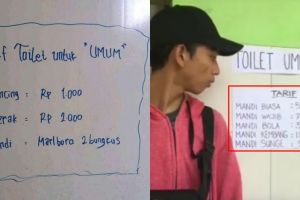 Toilet untuk "UMUM"
: Rp 1.000
: Rp 2.000
: Marlboro 2 bungkus
TOILET UM
TARIF
MANDI BIASA :
MANDI WAJIB :
MANDI BOLA :
MANDI KEMBANG :
MANDI SUNGE :